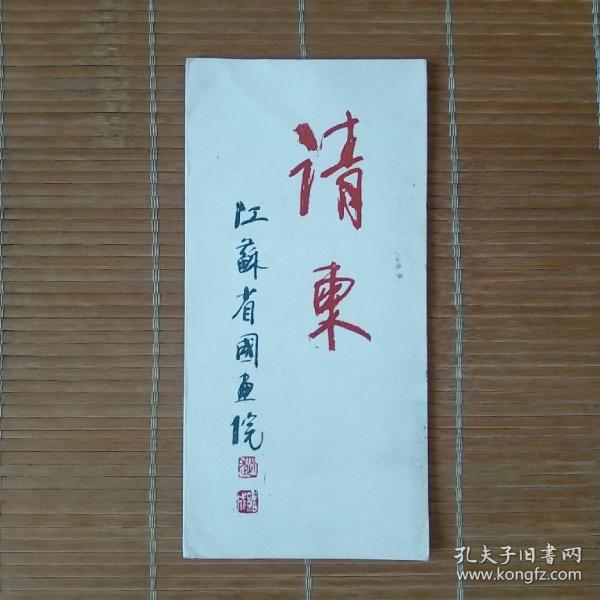 请柬
江蘇省國画院
孔夫子旧書网
www.kongfz.com